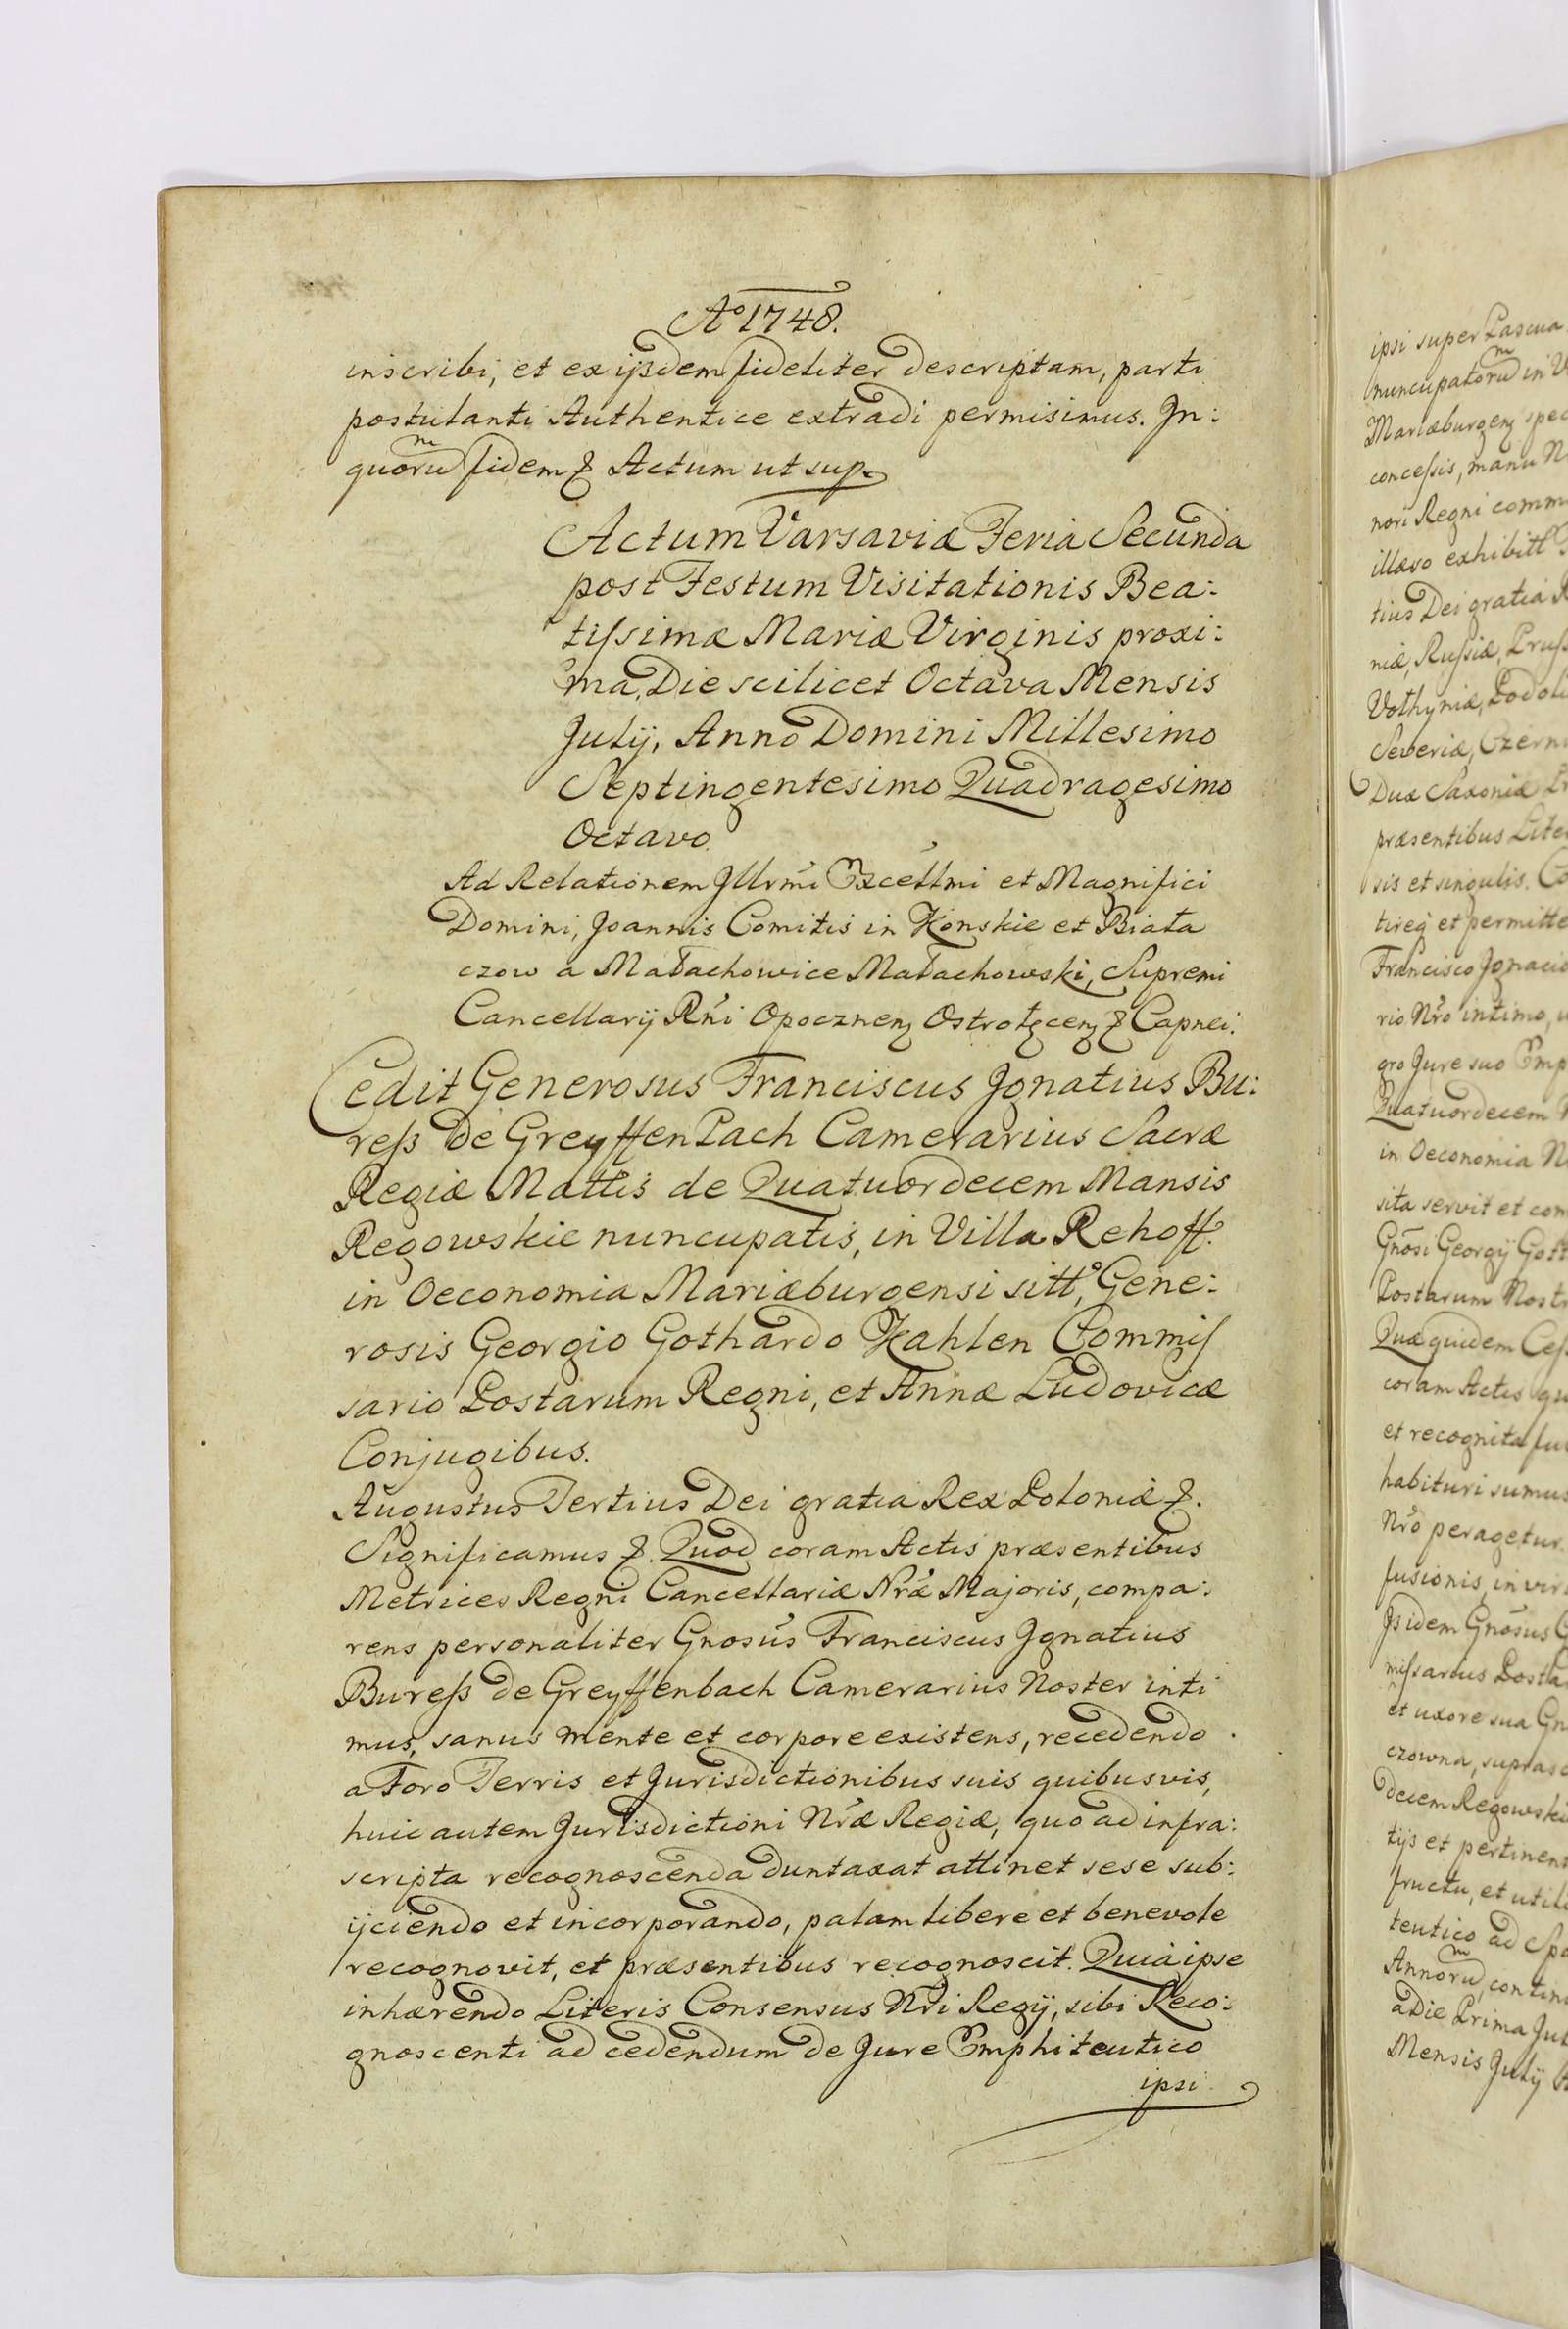 Aº 1748.
inscribi, et ex ijsdem fideliter descriptam, parti
postulanti Authentice extradi permisimus. In:
quoru͂m fidem & Actum ut sup.
Actum Varsaviæ Feria Secunda
post Festum Visitationis Bea:
tiſsimæ Mariæ Virginis proxi:
ma, Die scilicet Octava Mensis
Julij, Anno Domini Millesimo
Septingentesimo Quadragesimo
Octavo.
Ad Relationem Jllrmi Excellmi et Magnifici
Domini, Joannis Comitis in Konskie et Biała
czow a Małachowice Małachowski, Supremi
Cancellarij Rni Opocznen Ostrołęcen & Capnei.
Cedit Generosus Franciscus Jgnatius Bu:
reſs de Greyffenbach Camerarius Sacræ
Regiæ Mattis de Quatuordecem Mansis
Regowskie nuncupatis, in Villa Rehoff.
in Oeconomia Mariæburgensi sitt°, Gene:
rosis Georgio Gothardo Kahlen Commiſ
sario Postarum Regni, et Annæ Ludovicæ
Conjugibus.
Augustus Tertius Dei gratia Rex Poloniæ &.
Significamus &. Quod coram Actis præsentibus
Metrices Regni Cancellariæ Nræ Majoris, compa:
rens personaliter Gnosus Franciscus Jgnatius
Bureſs de Greyffenbach Camerarius Noster inti
mus, sanus mente et corpore existens, recedendo
a Foro Terris et Jurisdictionibus suis quibusvis,
huic autem Jurisdictioni Nræ Regiæ, quo ad infra:
scripta recognoscenda duntaxat attinet sese sub:
ijciendo et incorporando, palam libere et benevole
recognovit, et præsentibus recognoscit. Quia ipse
inhærendo Literis Consensus Nri Regij, sibi Reco:
gnoscenti ad cedendum de Jure Emphiteutico
ipsi
ipsi super Pascua
nuncupatoru͂m in
Mariæburgen
conceſsis, manu
nori Regni
illæso exhibitt
tius Dei gratia
niæ, Ruſsiæ,
Volhyniæ,
Severiæ,
Dux Saxoniæ
præsentibus
sis et singulis.
tireq et permitte
Francisco Jgnacio
rio Nro intimo,
gro Jure suo
Quatuordecem
in Oeconomia
sita servit et
Gnosi Georgij
Postarum
Quæ quidem
coram Actis
et recognita
habituri sumus
Nro peragetur.
fusionis, in
Jsidem Gnosus
miſsarius
et uxore sua
czowna,
decem
tijs et
fructu, et
teutico ad
Annoru͂m,
a Die Prima
Mensis Julij